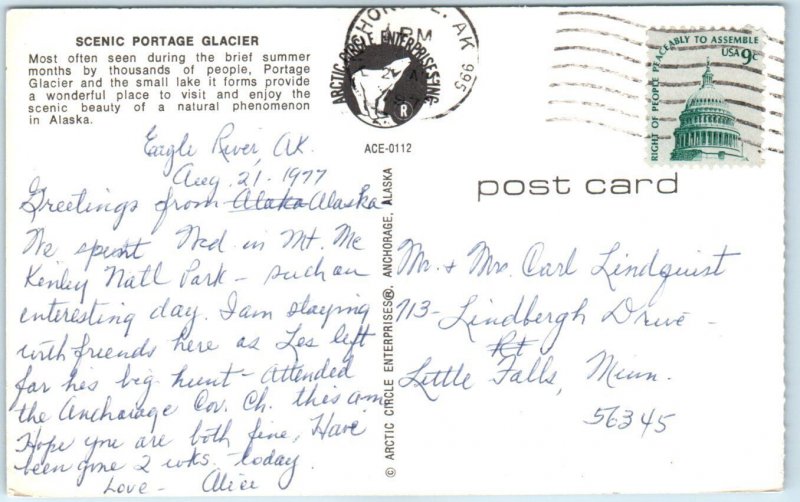 SCENIC PORTAGE GLACIER
Most often seen during the brief summer
months by thousands of people, Portage
Glacier and the small lake it forms provide
a wonderful place to visit and enjoy the
scenic beauty of a natural phenomenon
in Alaska.
ARCTIC CIRCLE ENTERPRISES INC.
R
ACE-0112
AK 995
PM
RIGHT OF PEOPLE PEACEABLY TO ASSEMBLE
USA 9c
post card
© ARCTIC CIRCLE ENTERPRISES®, ANCHORAGE, ALASKA
Eagle River, AK.
Aug. 21, 1977
Greetings from Alaka Alaska
We spent Wed in Mt. Mc
Kinley Natl Park - such an
interesting day. I am staying
with friends here as Les left
for his big hunt - Attended
the Anchorage Cov. Ch. this a.m
Hope you are both fine, Have
been gone 2 wks. today.
Love - Alice
Mr. & Mrs. Carl Lindquist
713 - Lindbergh Drive -
Rt
Little Falls, Minn.
56345